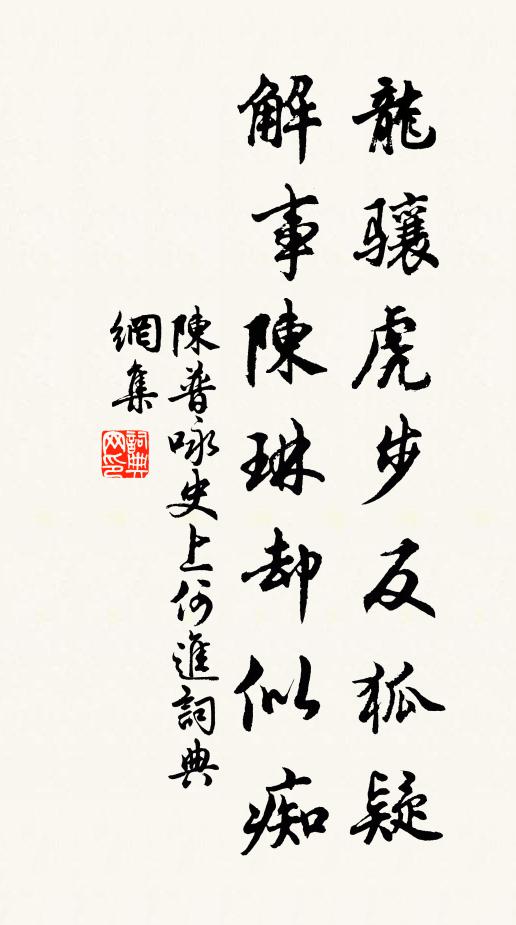 龍驤虎步反狐疑
解事陳琳却似痴
陳普咏史上何進詞典
網集
詞典网印